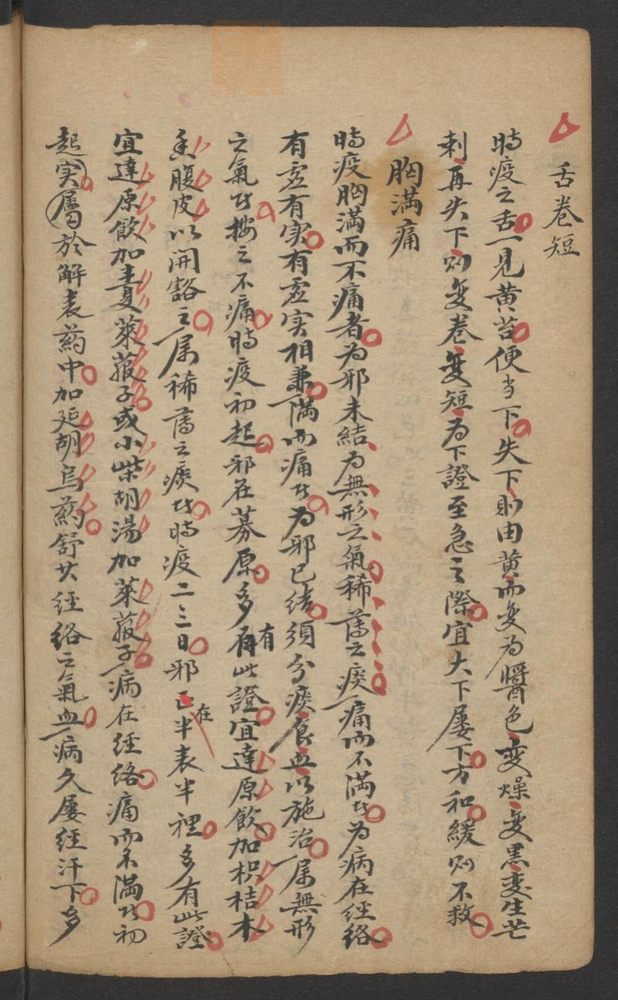 舌卷短
時疫之舌一見黄苔便当下失下則由黄而变為醬色变燥变黒变生芒
刺再失下则变卷变短为下證至急之際宜大下屡下方和緩则不救
胸满痛
時疫胸满而不痛者为邪未結为無形之氣稀薄之痰痛而不满者为病在經絡
有虚有実有虚実相兼满而痛者为邪已結須分痰食血以施治属無形
之氣者按之不痛時疫初起邪在募原多有此證宜達原飲加枳桔木
香腹皮以開豁之属稀薄之痰者時疫二三日邪在半表半裡多有此證
宜達原飲加半夏萊菔子或小柴胡湯加萊菔子病在經絡痛而不满者初
起実属於解表药中加延胡烏药舒其經絡之氣血病久屡經汗下多